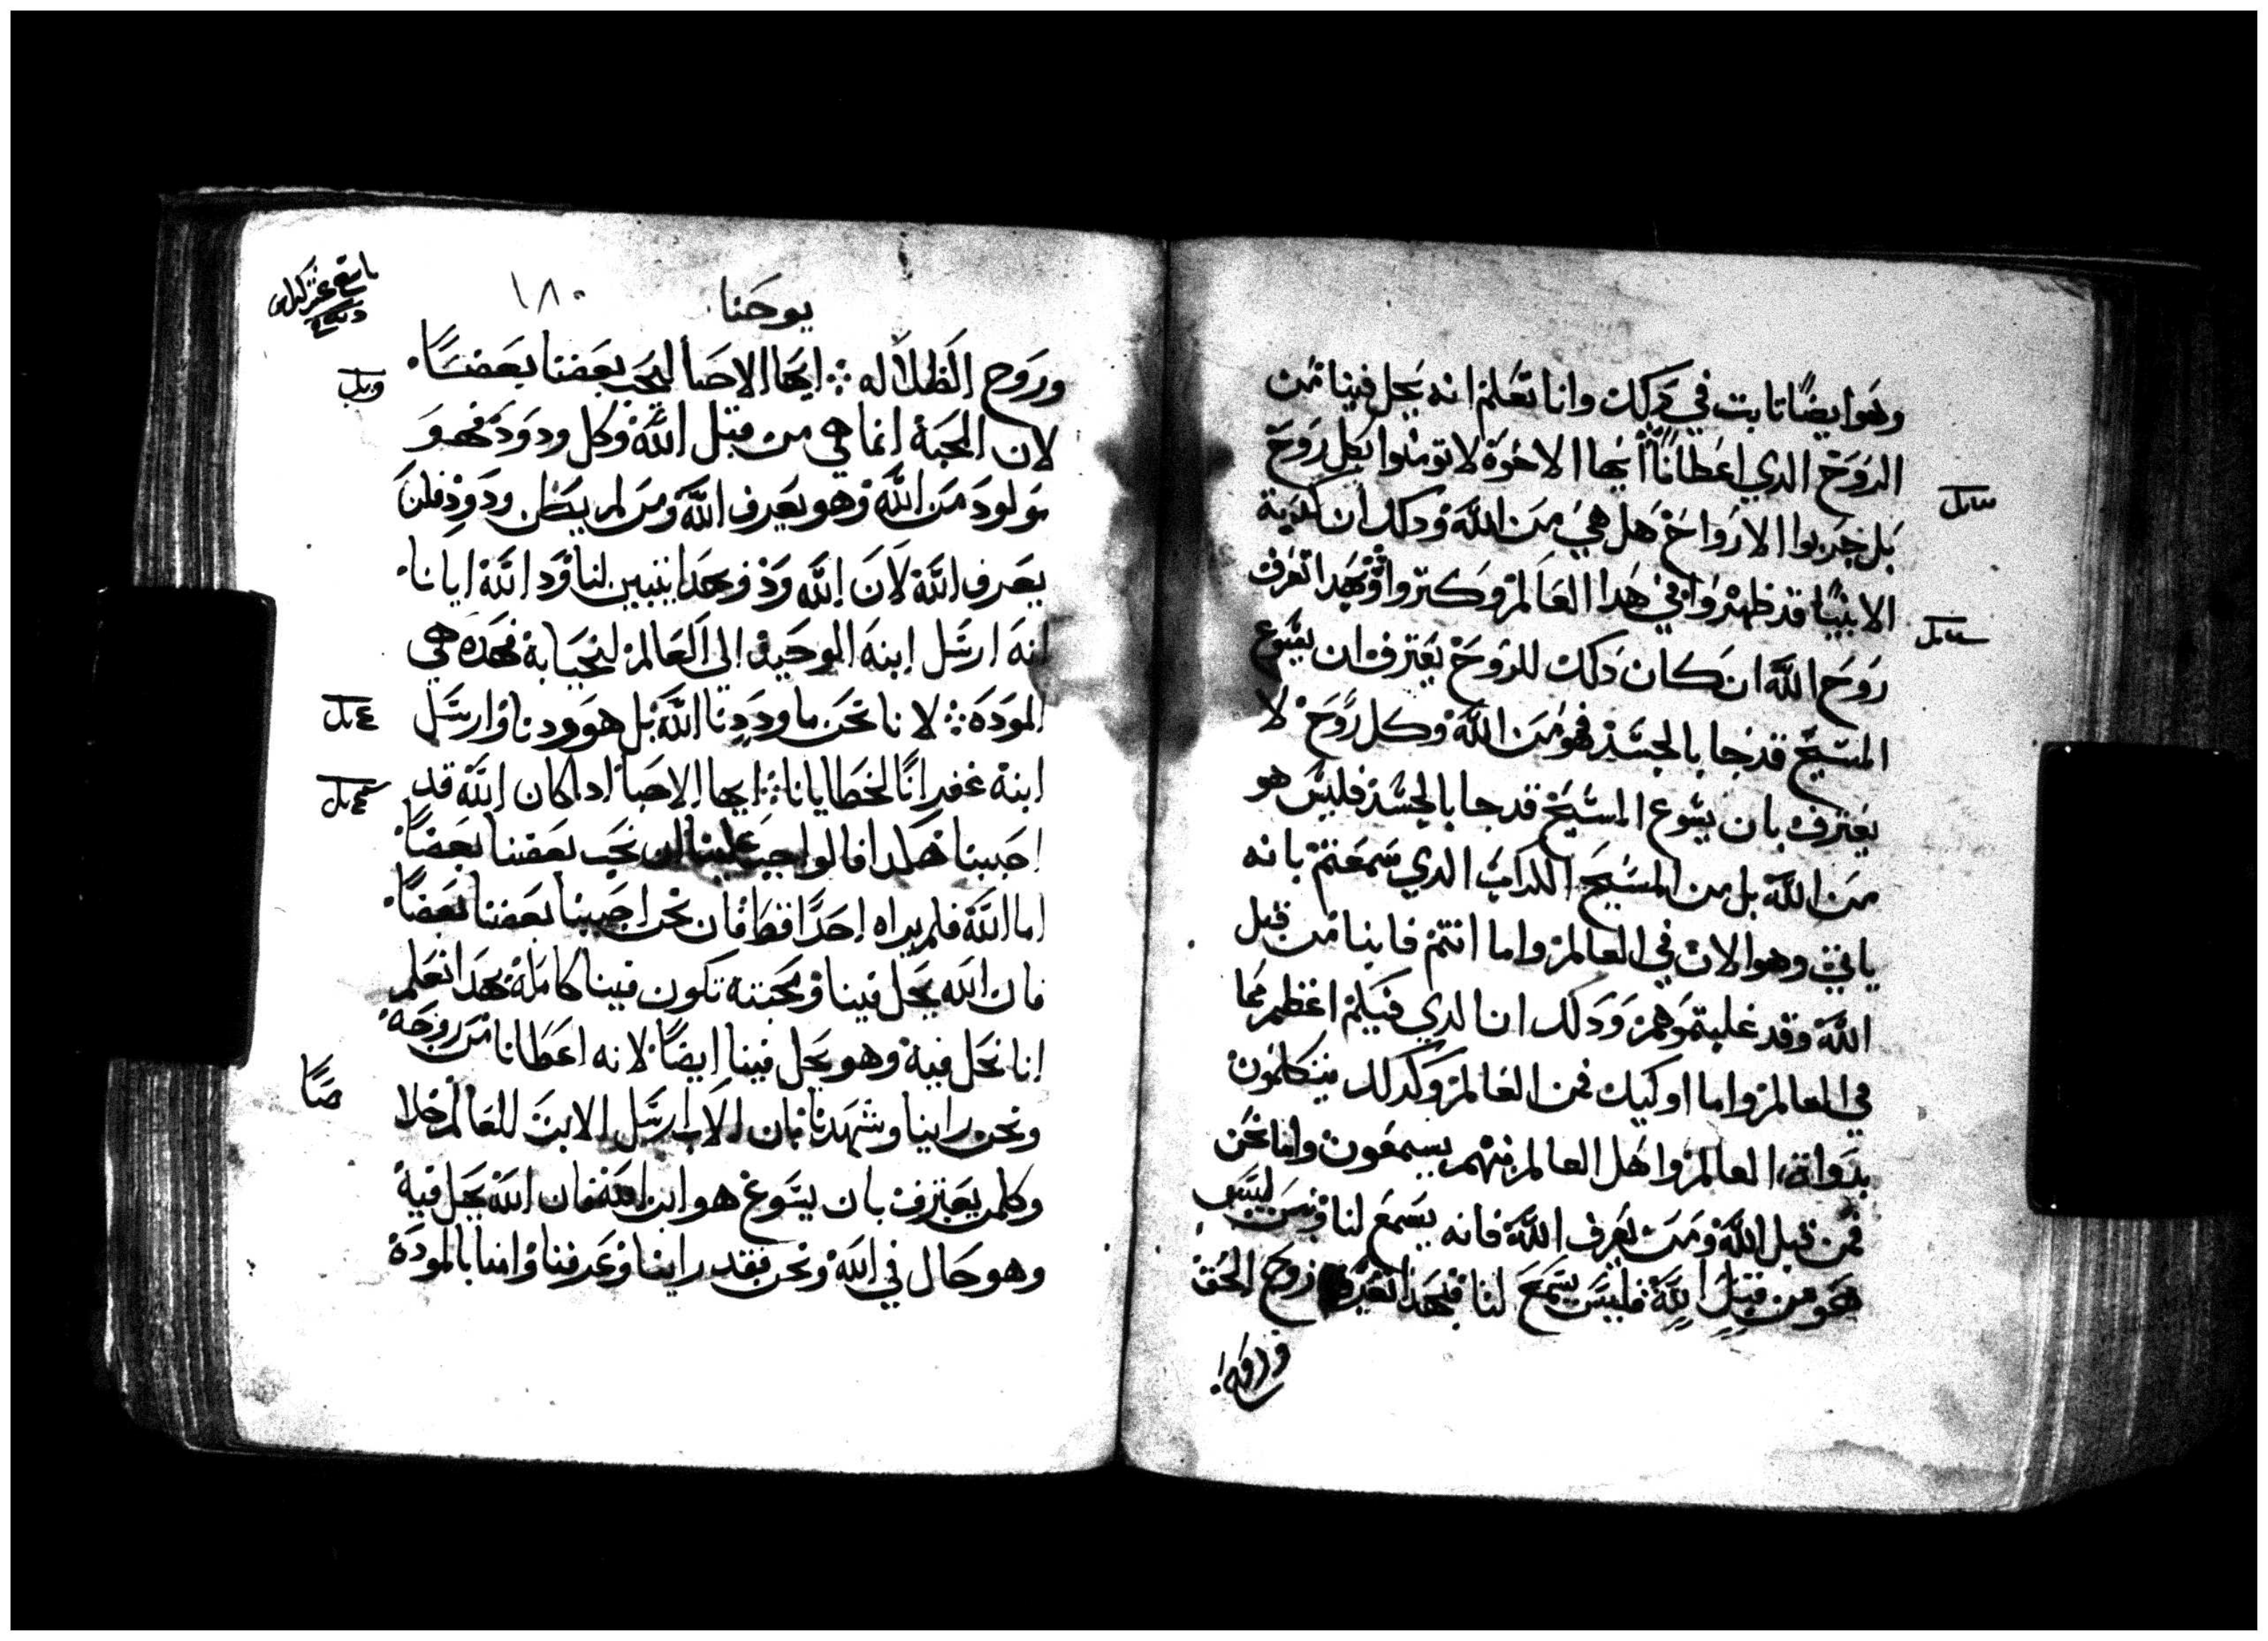 وهو ايضًا تابت في دلك وانا تعلم انه يحل فينا من
الروح الدي اعطانا ايها الاخوة لا تومنوا بكل روح
بل جربوا الارواح هل هي من الله ودلك ان كدبة
الانبيا قد ظهروا في هدا العالم وكتروا وبهدا تعرف
روح الله ان كان دلك للروح يعترف ان يسوع
المسيح قد جا بالجسد فهو من الله وكل روح لا
يعترف بان يسوع المسيح قد جا بالجسد فليس هو
من الله بل من المسيح الكداب الدي سمعتم بانه
ياتي وهو الان في العالم واما انتم فابنا من قبل
الله وقد غلبتموهم ودلك ان الدي فيكم اعظم مما
في العالم واما اوليك فمن العالم وكدلك يتكلمون
بدواة العالم واهل العالم منهم يسمعون واما نحن
فمن قبل الله ومن يعرف الله فانه يسمع لنا ومن ليس
هو من قبل الله فليس يسمع لنا فبهدا تعرف روح الحق
وروح
يوحنا
١٨٠
وروح الظلاله ايها الاحبا ليحب بعضنا بعضًا
لان المحبة انما هي من قبل الله وكل ودود فهو
مولود من الله وهو يعرف الله ومن لم يكن ودود فلن
يعرف الله لان الله ود وبهدا يتبين لنا ود الله ايانا
انه ارسل ابنه الوحيد الى العالم لنحيا به فهده هي
المودة لانا نحن ما وددنا الله بل هو ودنا وارسل
ابنه غفرانًا لخطايانا ايها الاحبا ادا كان الله قد
احببنا هكدا فالواجب علينا ان نحب بعضنا بعضًا
اما الله فلم يراه احدًا قط فان نحن احببنا بعضنا بعضًا
فان الله يحل فينا ومحبته تكون فينا كاملة بهدا نعلم
انا نحل فيه وهو يحل فينا ايضًا لانه اعطانا من روحه
ونحن راينا وشهدنا بان الاب ارسل الابن للعالم خلا
صًا
وكلمن يعترف بان يسوع هو ابن الله فان الله يحل فيه
وهو حال في الله ونحن فقد راينا وعرفنا وامنا بالمودة